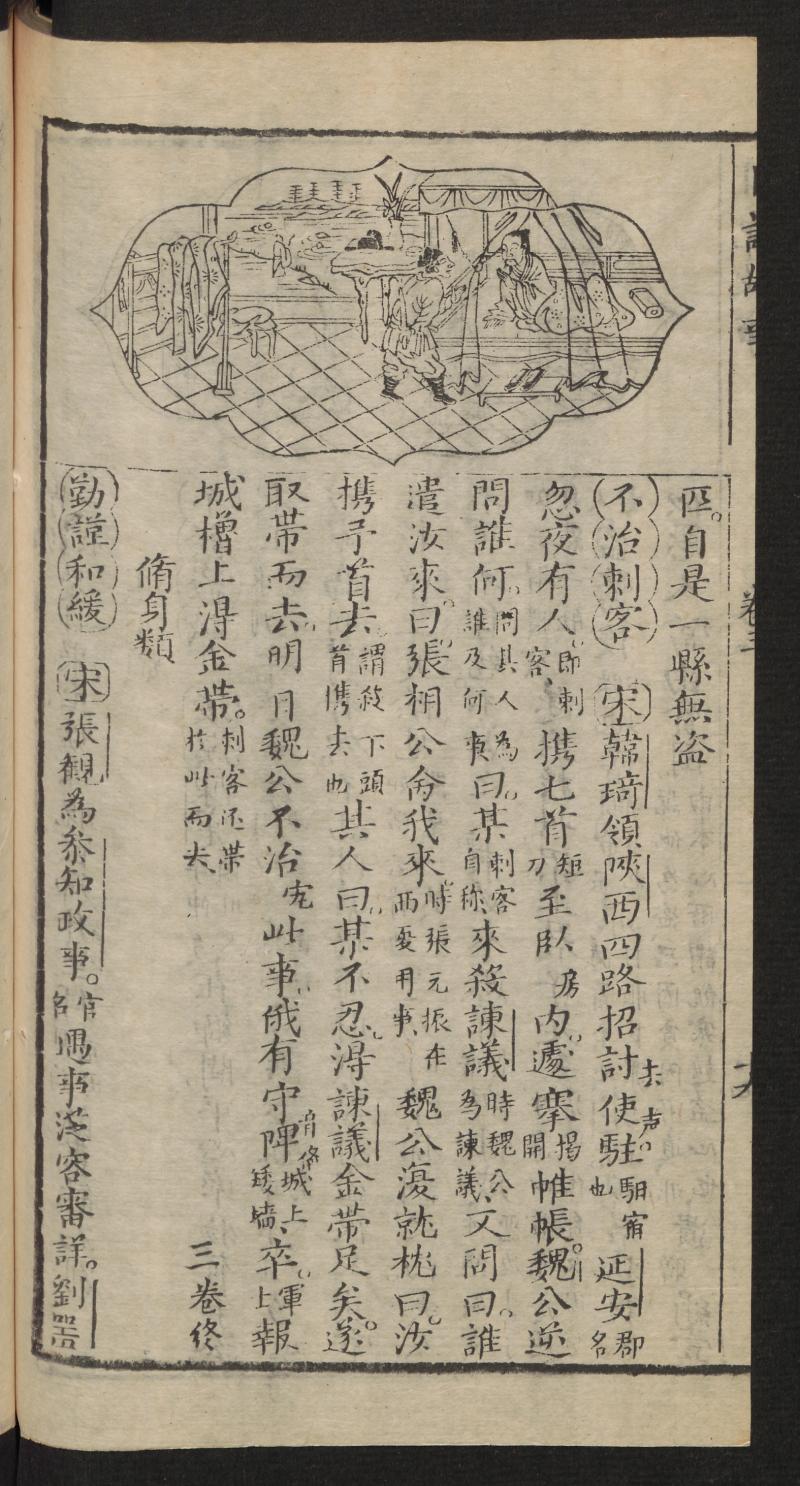 日記故事
卷三
匹自是一縣無盗
不治刺客 宋韓琦領陝西四路招討去声使駐馹宿也延安郡名
忽夜有人即刺客携匕首短刀至臥房内遽搴揭開帷帳魏公逆
問誰何問其人為誰及何事曰某刺客自称來殺諫議時魏公為諫議又問曰誰
遣汝來曰張相公令我來時張元振在西夏用事魏公復就枕曰汝
携予首去謂殺下頭首携去也其人曰某不忍得諫議金帶足矣遂
取帶而去明日魏公不治究此事俄有守陴音俻城上矮墻卒軍上報
城櫓上得金帶刺客还帶於此而去 三卷终
脩身類
勤謹和緩 宋張觀為叅知政事官名遇事從容審詳劉器